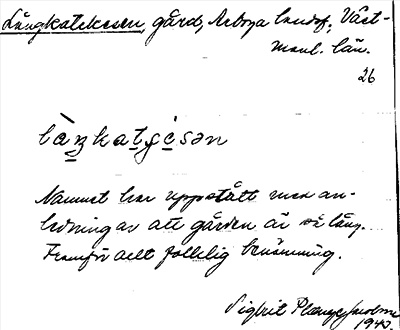 Långkatekesen, gård, Arboga landsf., Väst-
manl. län.
26
Namnet har uppstått med an-
ledning av att gården är så lång.
Framför allt folklig benämning.
Sigbrit Plænge Jacobson
1940.